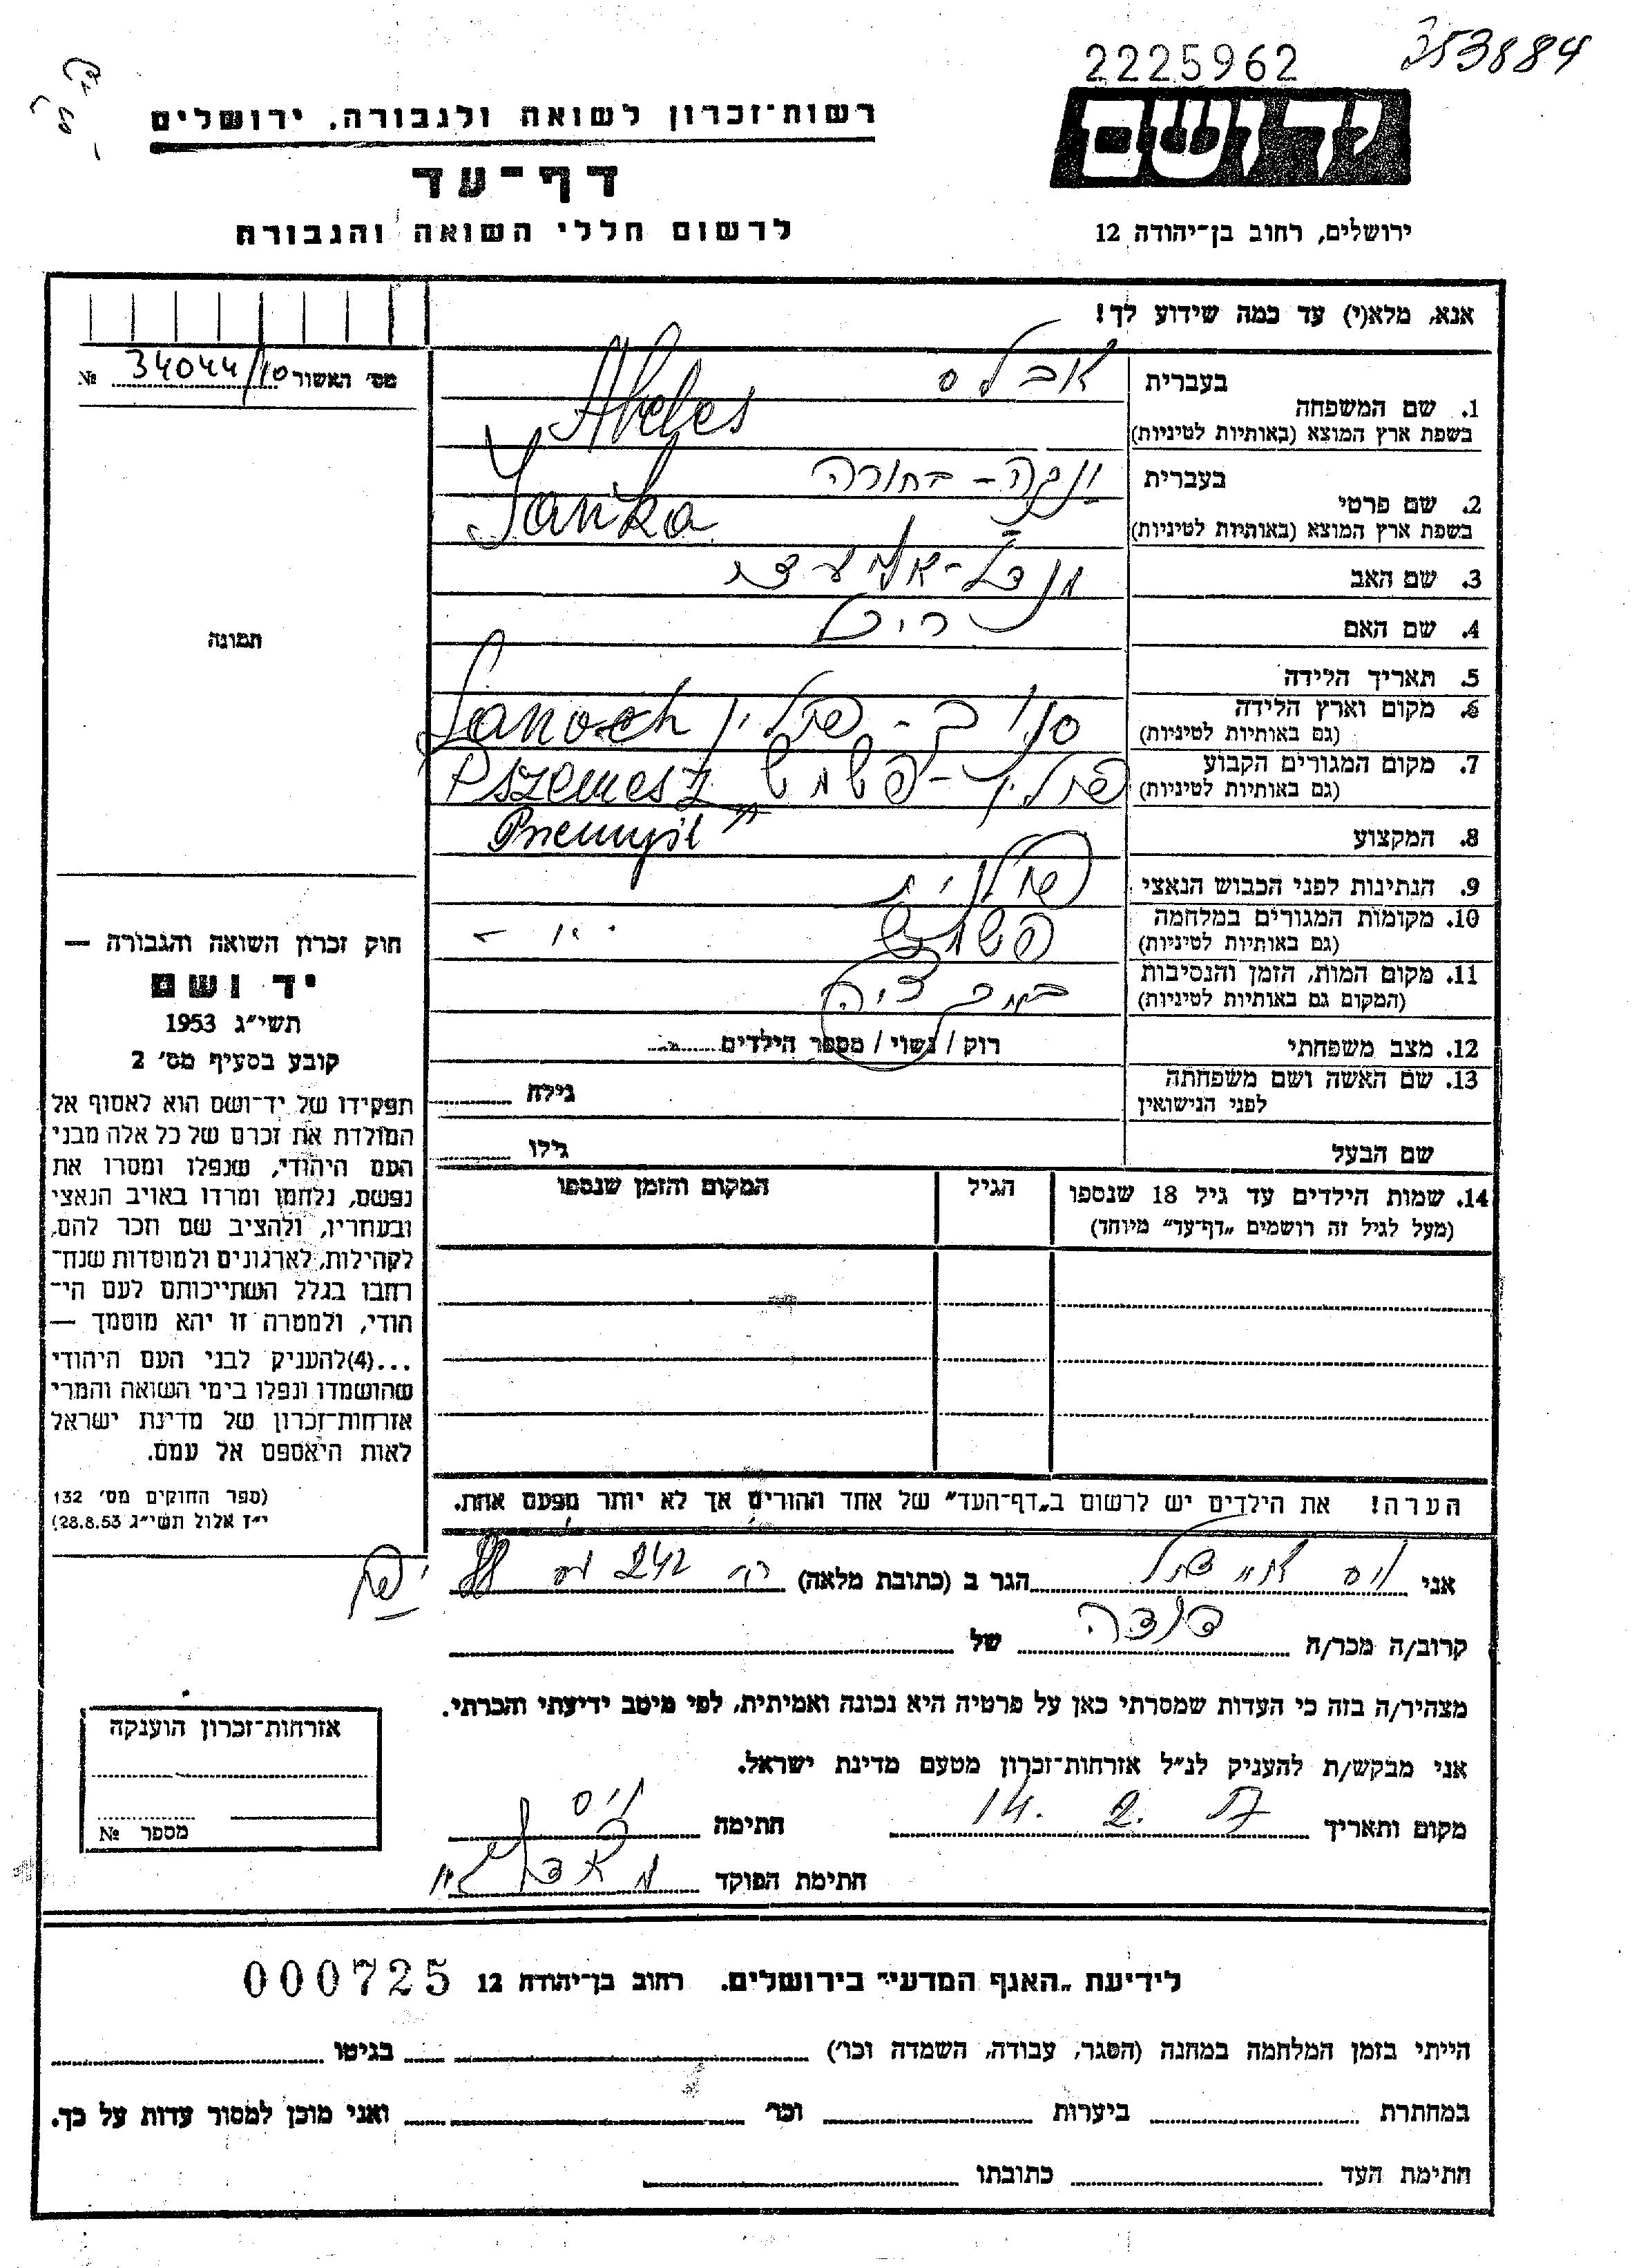 2225962
353884
רשות־זכרון לשואה ולגבורה, ירושלים
יד ושם
דף־עד
לרשום חללי השואה והגבורה
ירושלים, רחוב בן־יהודה 12
אנא, מלא(י) עד כמה שידוע לך!
מס׳ האשור 34044/10 №
1. שם המשפחה
בעברית אבלס
בשפת ארץ המוצא (באותיות לטיניות) Abeles
2. שם פרטי
בעברית ינקה - בחורה
בשפת ארץ המוצא (באותיות לטיניות) Yanka
3. שם האב מנדל־
4. שם האם ריכל
5. תאריך הלידה
6. מקום וארץ הלידה
(גם באותיות לטיניות) פולין Sanock
7. מקום המגורים הקבוע
(גם באותיות לטיניות) פולין - פשמש Pszemesz
Przemyśl
8. המקצוע
9. הנתינות לפני הכבוש הנאצי פולנית
10. מקומות המגורים במלחמה
(גם באותיות לטיניות) פשמש
11. מקום המות, הזמן והנסיבות
(המקום גם באותיות לטיניות) באקציה
12. מצב משפחתי רוק / נשוי / מספר הילדים
13. שם האשה ושם משפחתה
לפני הנישואין גילה
שם הבעל גילו
14. שמות הילדים עד גיל 18 שנספו
(מעל לגיל זה רושמים „דף־עד״ מיוחד)
הגיל
המקום והזמן שנספו
הערה! את הילדים יש לרשום ב„דף־העד״ של אחד ההורים אך לא יותר מפעם אחת.
תמונה
חוק זכרון השואה והגבורה —
יד ושם
תשי״ג 1953
קובע בסעיף מס׳ 2
תפקידו של יד־ושם הוא לאסוף אל
המולדת את זכרם של כל אלה מבני
העם היהודי, שנפלו ומסרו את
נפשם, נלחמו ומרדו באויב הנאצי
ובעוזריו, ולהציב שם וזכר להם,
לקהילות, לארגונים ולמוסדות שנח־
רבו בגלל השתייכותם לעם הי־
הודי, ולמטרה זו יהא מוסמך —
...(4)להעניק לבני העם היהודי
שהושמדו ונפלו בימי השואה והמרי
אזרחות־זכרון של מדינת ישראל
לאות היאספם אל עמם.
(ספר החוקים מס׳ 132
י״ז אלול תשי״ג 28.8.53)
אני וייס הגר ב (כתובת מלאה) 242 88 יפו
קרוב/ה מכר/ה דודה של
מצהיר/ה בזה כי העדות שמסרתי כאן על פרטיה היא נכונה ואמיתית, לפי מיטב ידיעתי והכרתי.
אני מבקש/ת להעניק לנ״ל אזרחות־זכרון מטעם מדינת ישראל.
מקום ותאריך 14. 2. 57 חתימה וייס
חתימת הפוקד
אזרחות־זכרון הוענקה
מספר №
לידיעת „האגף המדעי״ בירושלים. רחוב בן־יהודה 12 000725
הייתי בזמן המלחמה במחנה (הסגר, עבודה, השמדה וכו׳) בגיטו
במחתרת ביערות וכו׳ ואני מוכן למסור עדות על כך.
חתימת העד כתובתו